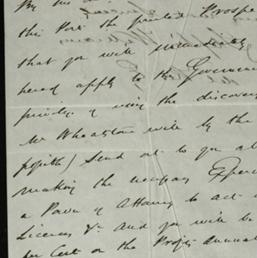 By the
this Post the printed Prospe
that you will immediately
head apply to the Governme
privilege of using the discovery
Mr Wheatstone will by the
possible) send out to you al
making the necessary Exper
a Power of Attorney to act
Licences &c and you will be
per Cent on the Profits annual